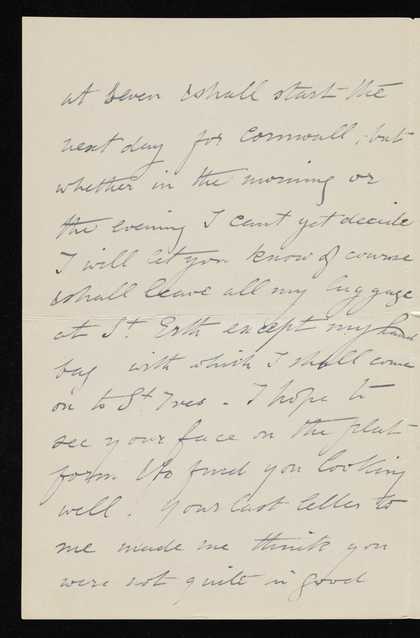 at Seven & shall start the
next day for Cornwall, but
whether in the morning or
the evening I cant yet decide
I will let you know of course
& shall leave all my luggage
at St. Erth except my hand
bag with which I shall come
on to St Ives - I hope to
see your face on the plat
form & to find you looking
well. Your last letter to
me made me think you
were not quite in good